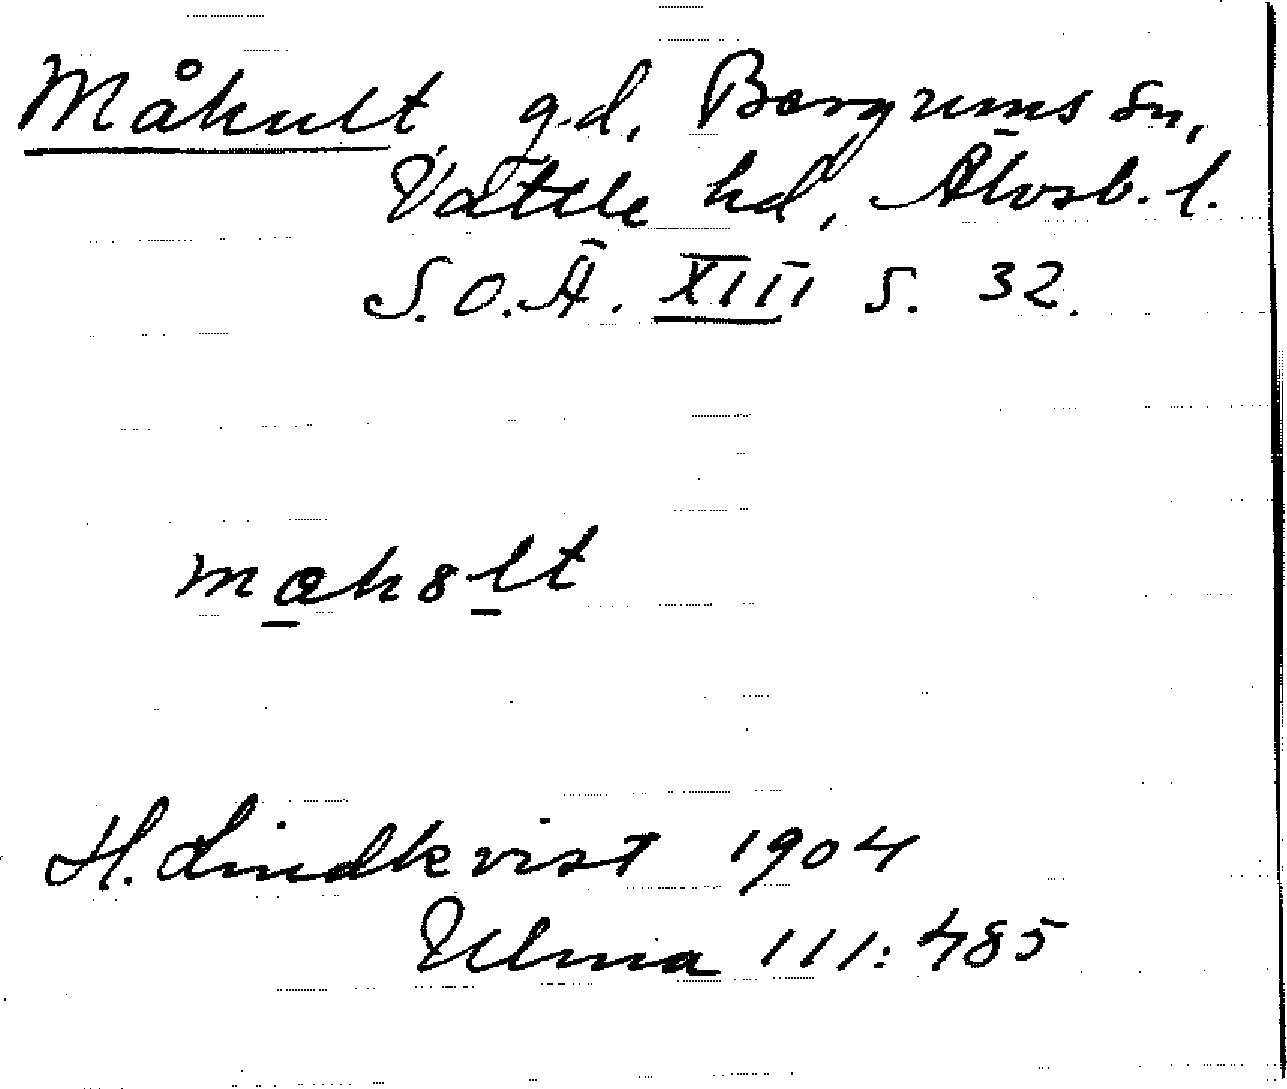 Måhult gd, Bergums sn,
Vättle hd, Älvsb. l.
S.O.Ä. XIII s. 32.
H. Lindkvist 1904
Ulma 111:485